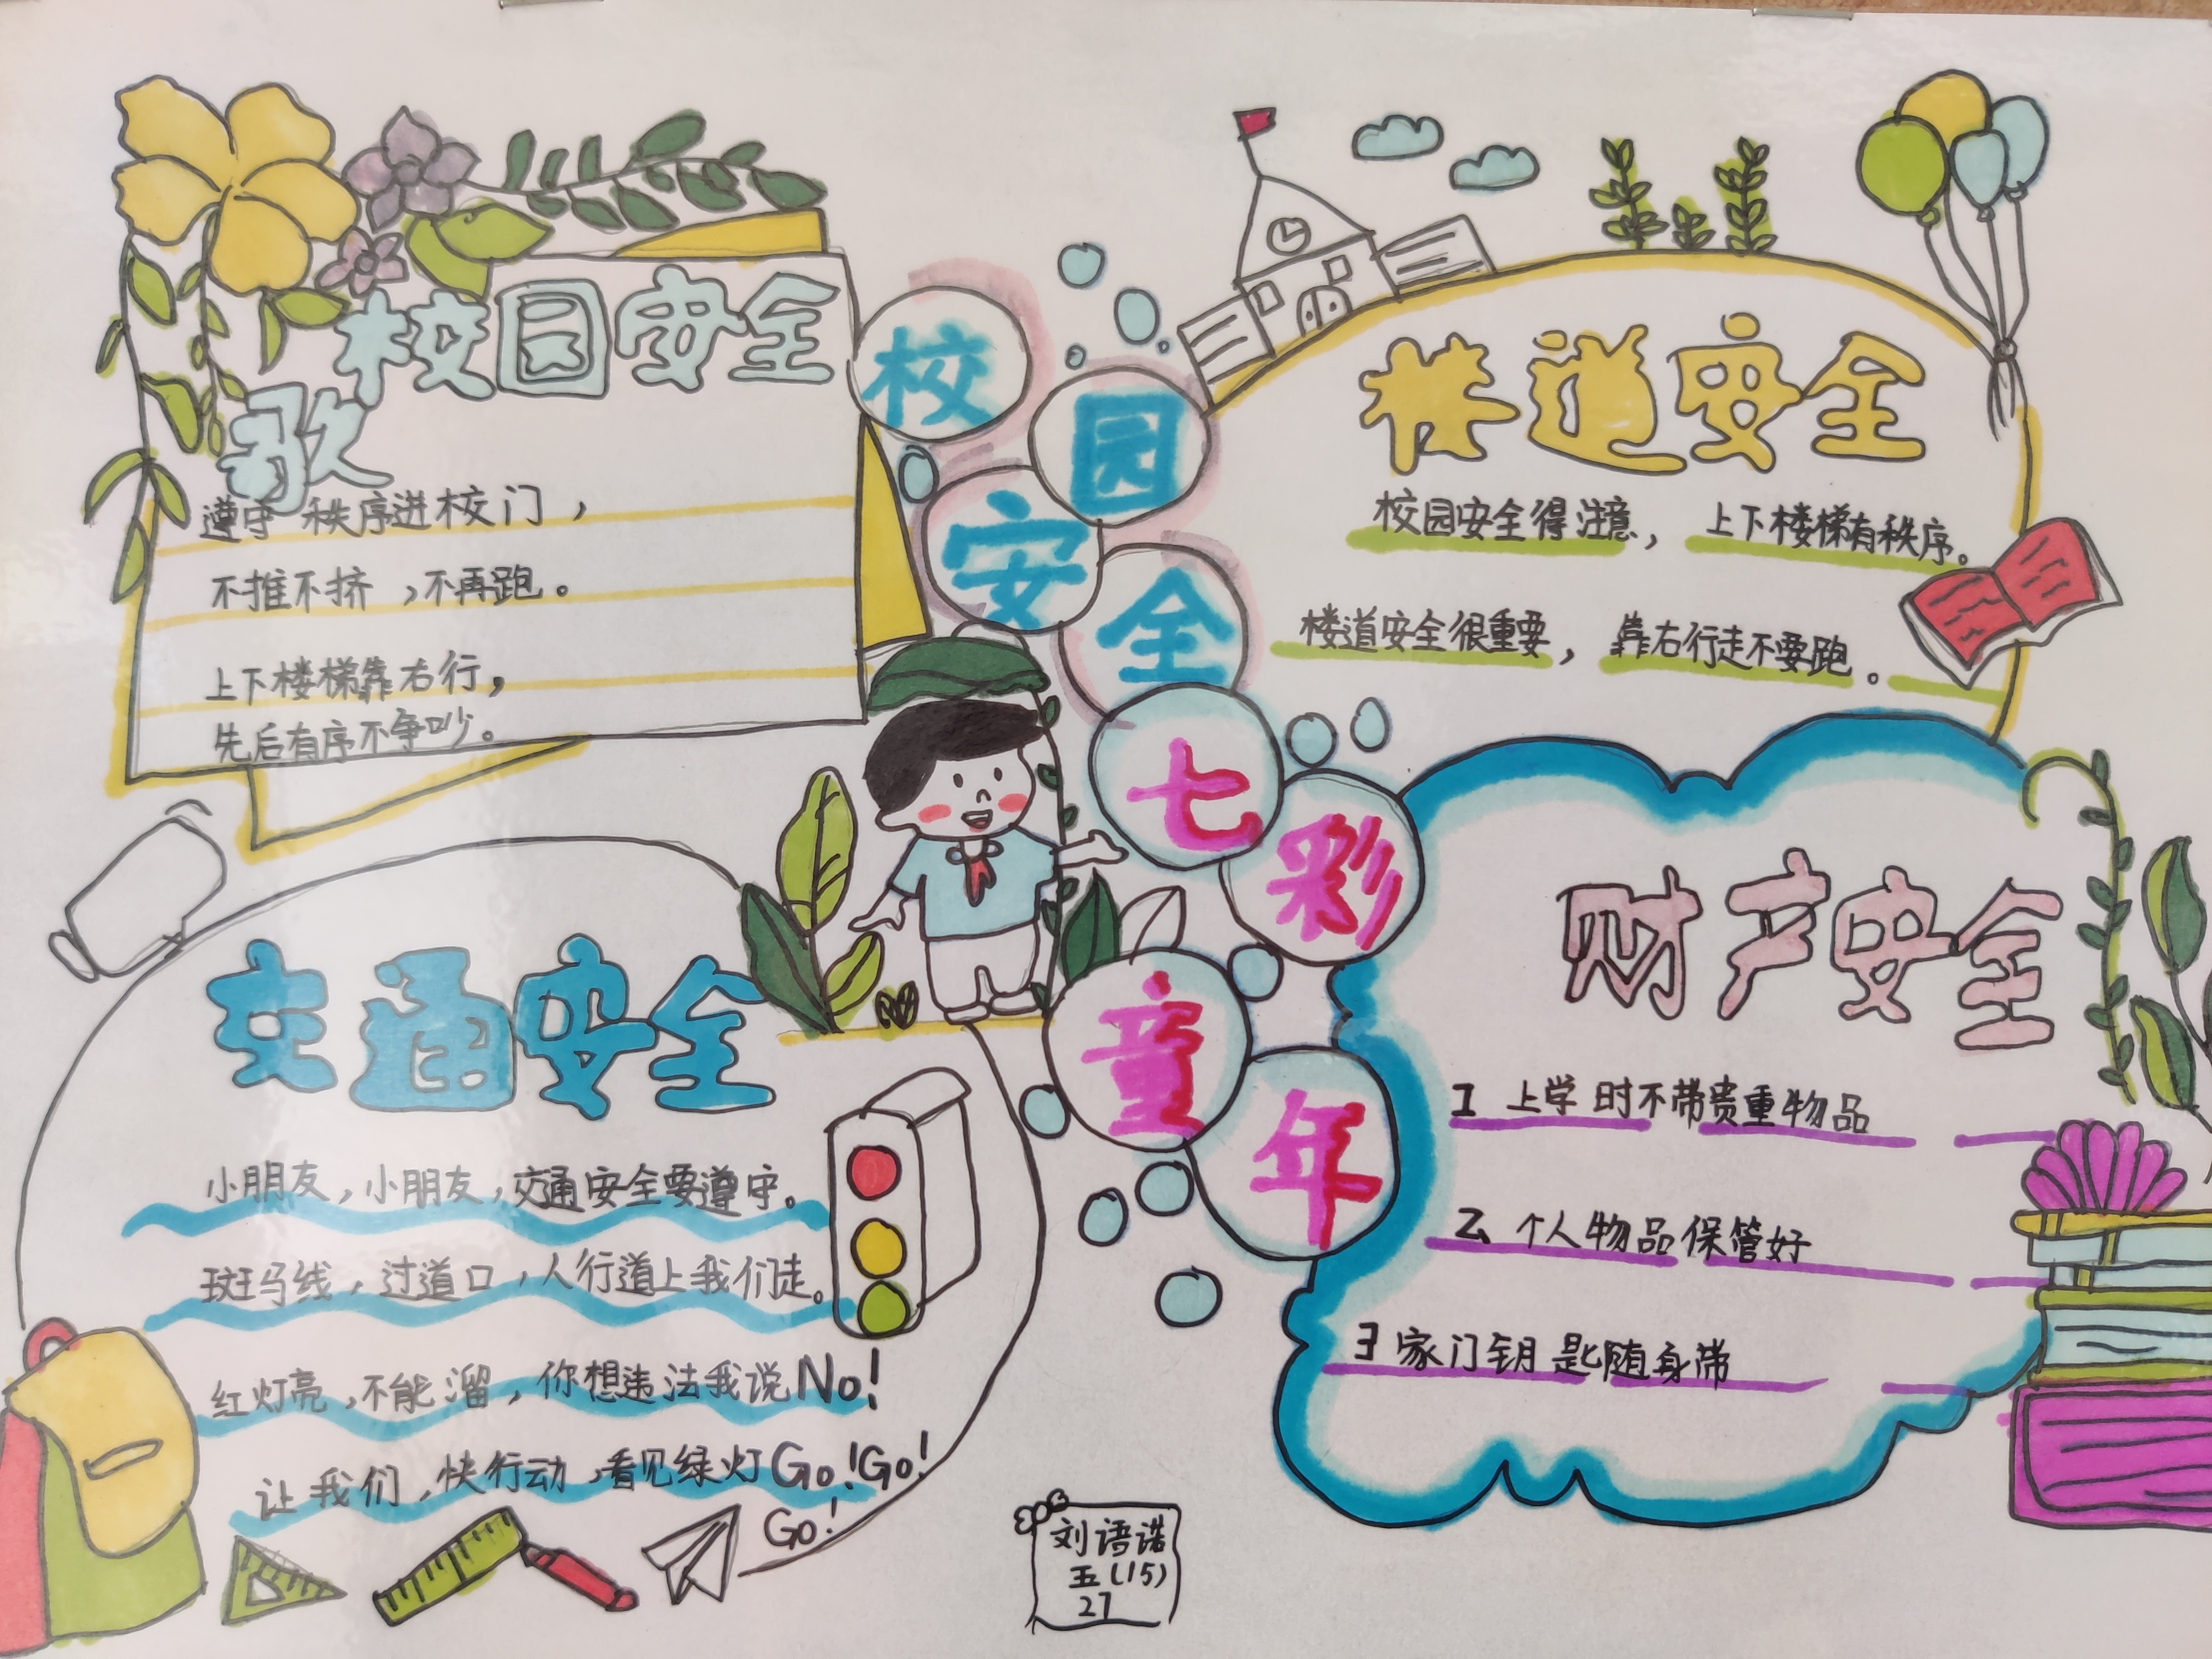 校园安全
歌
遵守秩序进校门，
不推不挤，不再跑。
上下楼梯靠右行，
先后有序不争吵。
校园安全七彩童年
楼道安全
校园安全得注意，上下楼梯有秩序。
楼道安全很重要，靠右行走不要跑。
交通安全
小朋友，小朋友，交通安全要遵守。
斑马线，过道口，人行道上我们走。
红灯亮，不能溜，你想违法我说No！
让我们，快行动，看见绿灯Go！Go！
Go！
财产安全
1 上学时不带贵重物品
2、个人物品保管好
3 家门钥匙随身带
刘语诺
五(15)
27